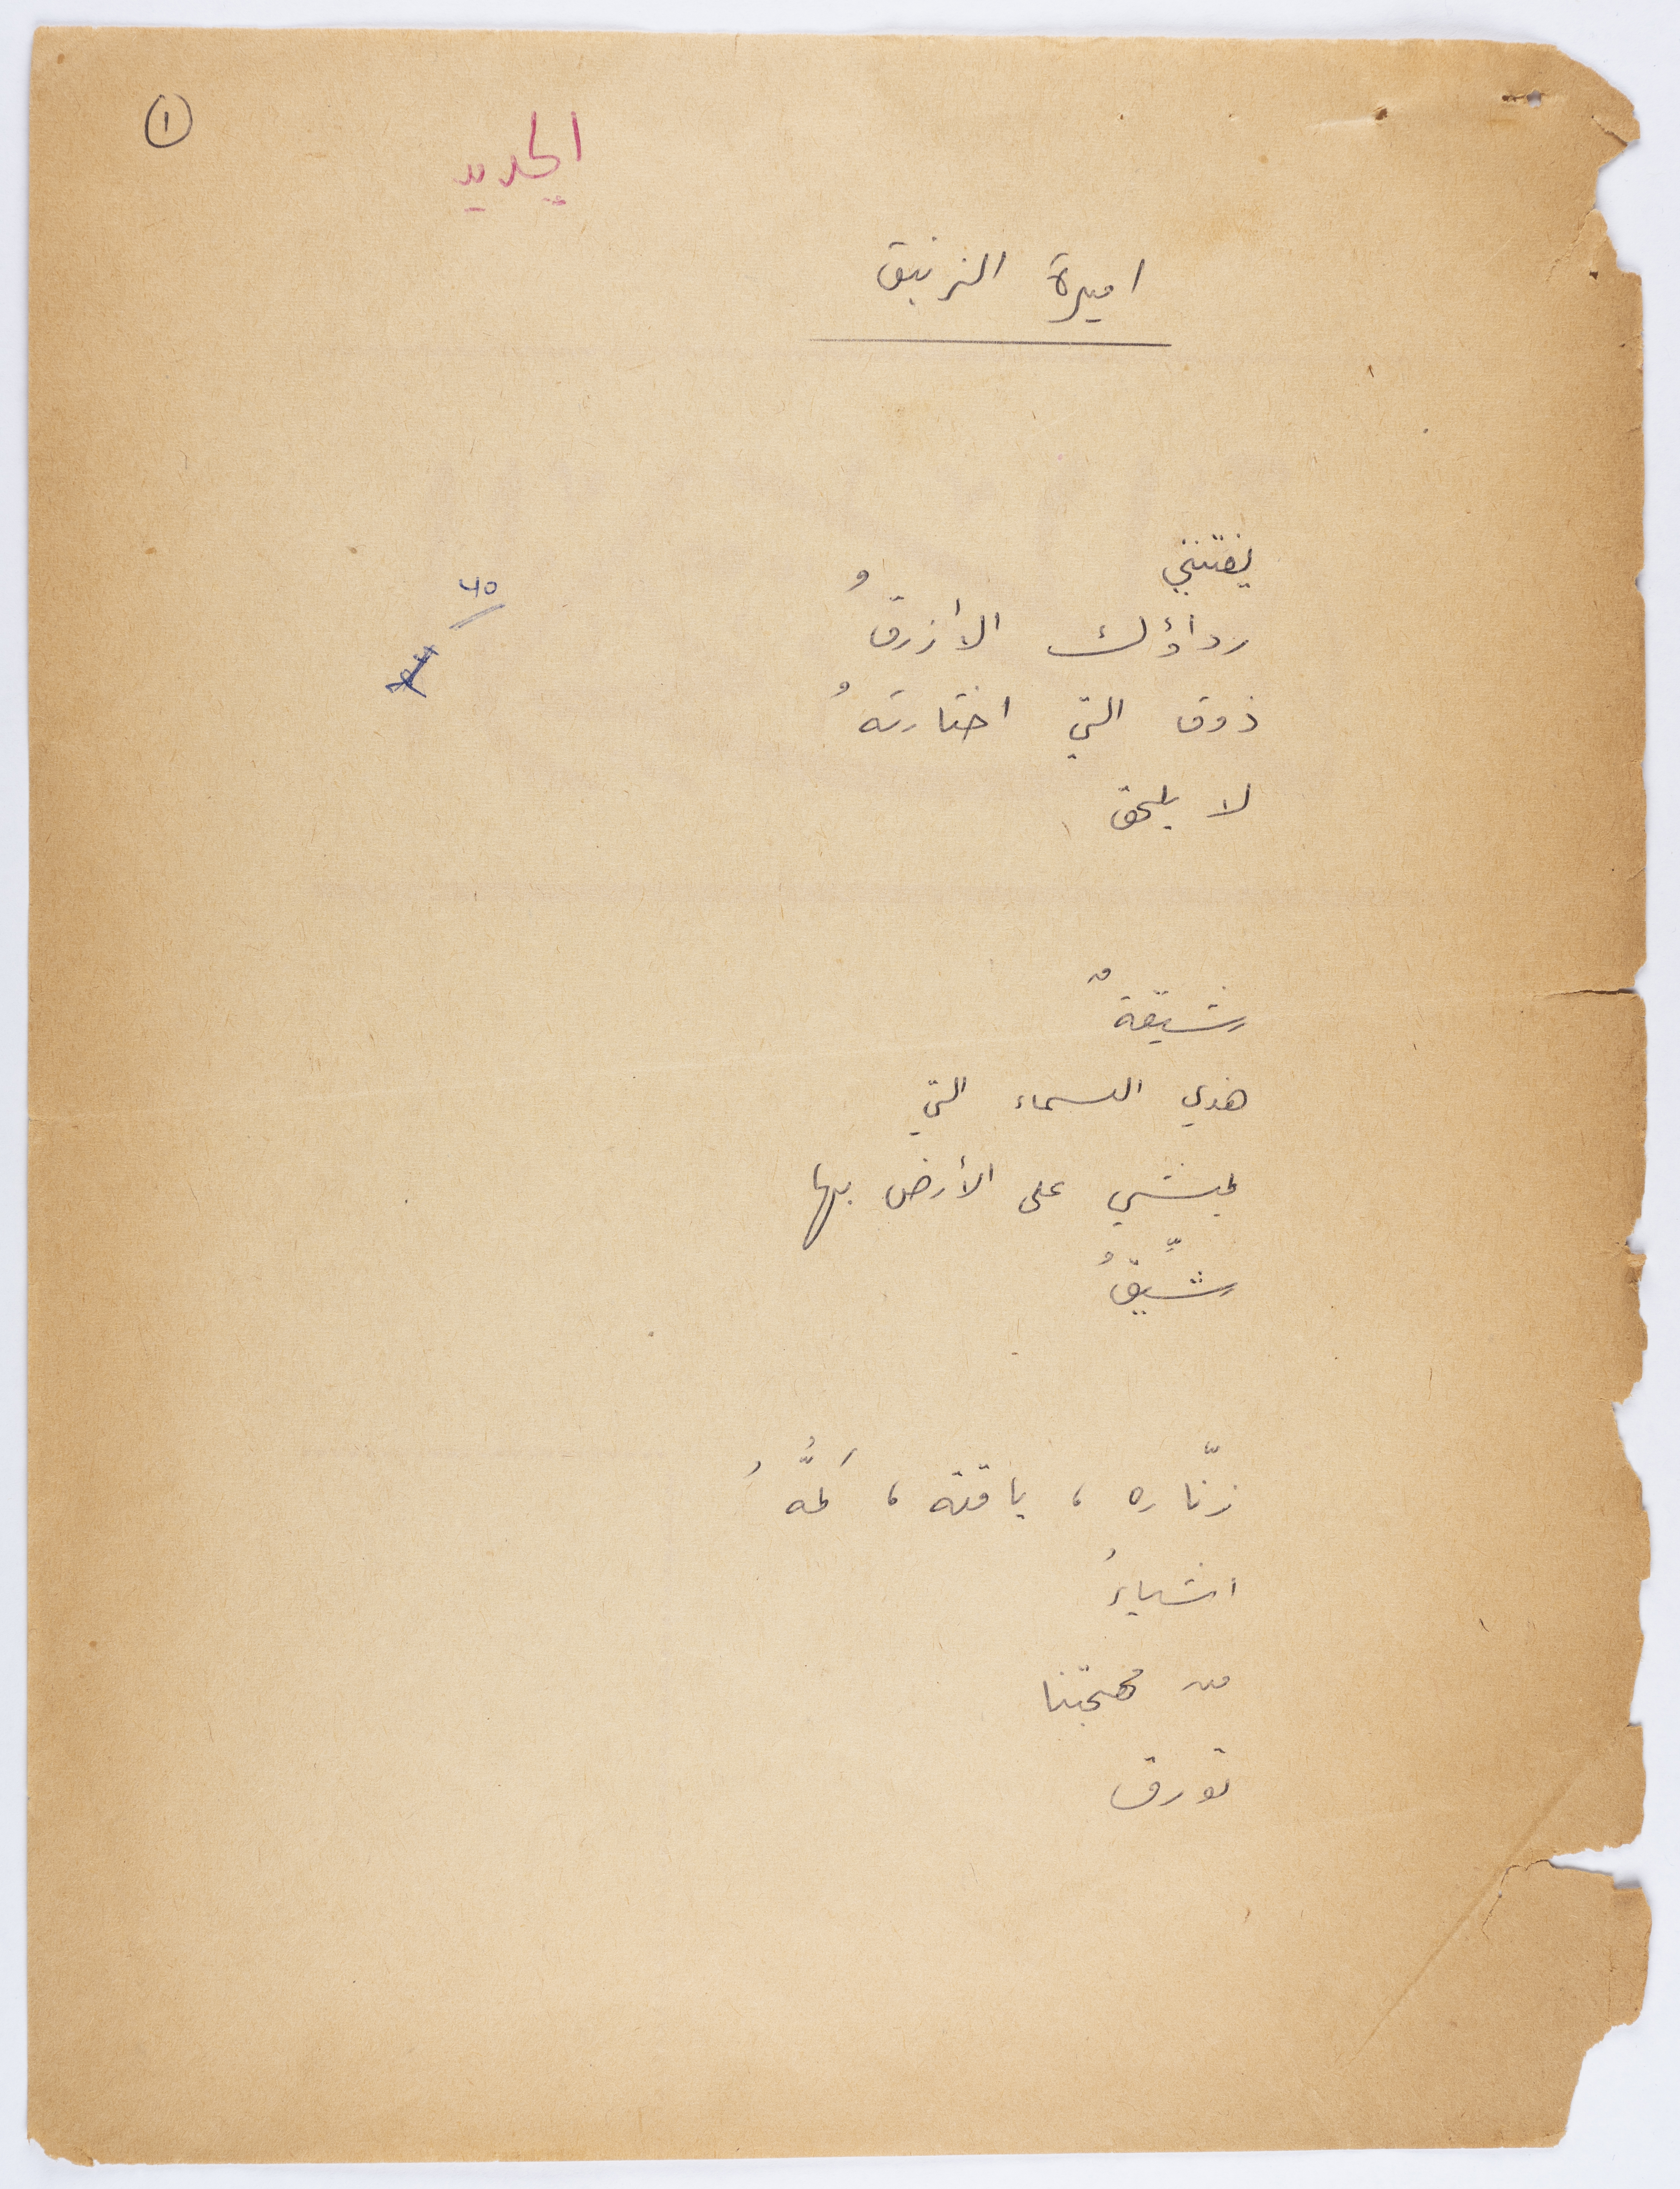 ١
الجديد
اميرة الزنبق
يفتنني
رداؤك الأزرقُ
ذوق التي اختارتهُ
لا يلحق
رشيقةٌ
هذي السماء التي
يمشي على الأرض بها
شيِّقُ
زنّاره ، ياقته ، كمُّهُ
اشياءُ
من مهجتنا
تورق